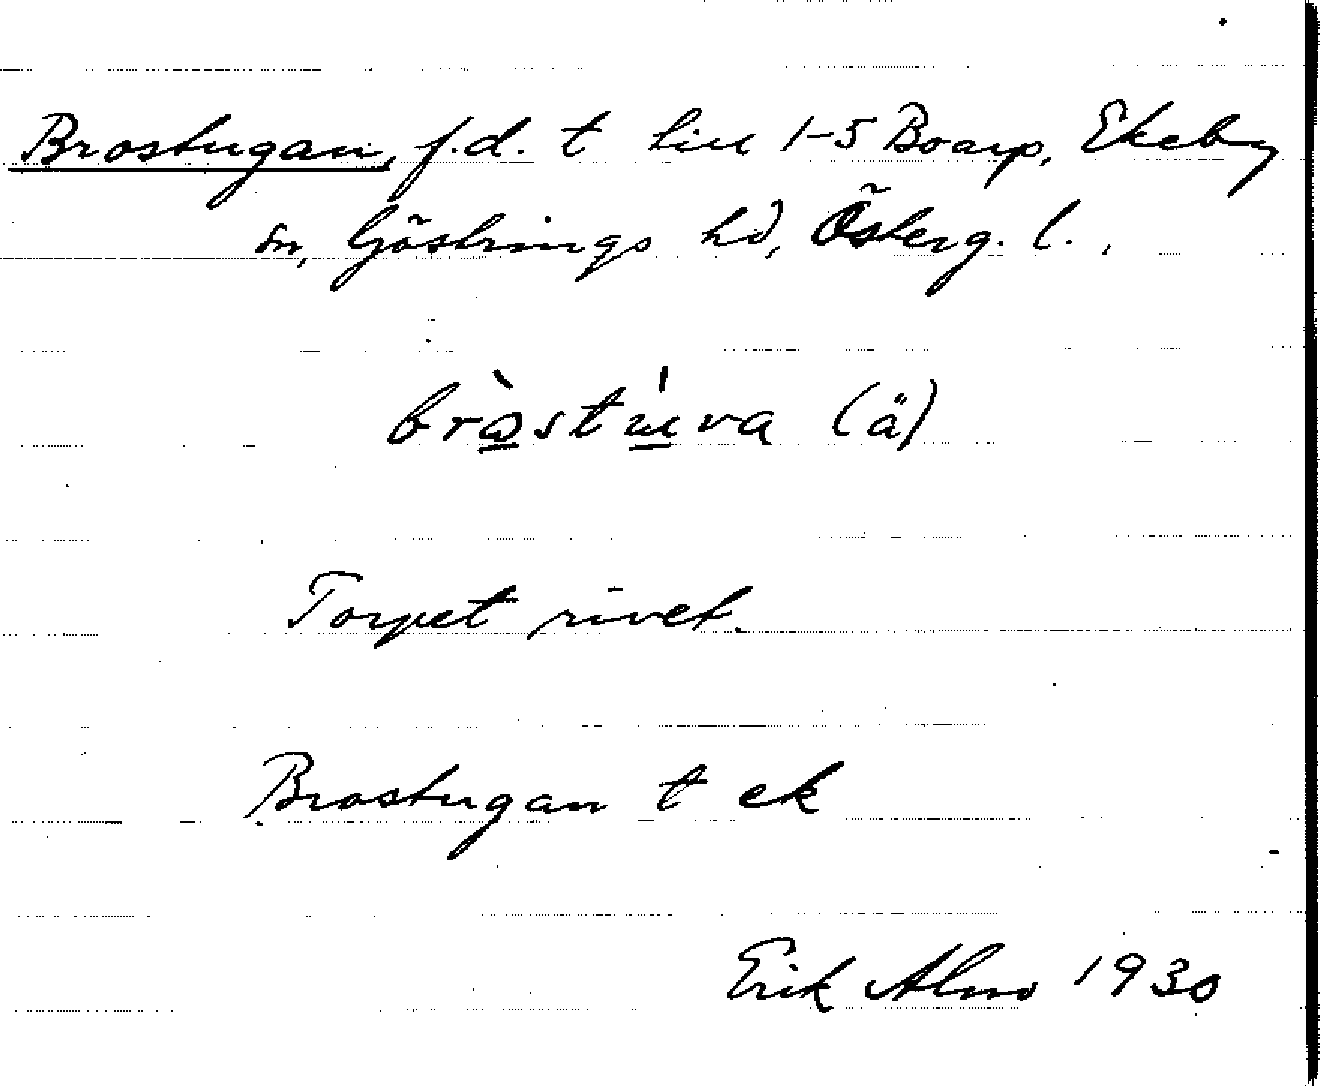 Brostugan, f.d. t till 1-5 Boarp, Ekeby
sn, Göstrings hd, Österg. l.
bròstúva (ä)
Torpet rivet.
Brostugan t ek
Erik Almo 1930